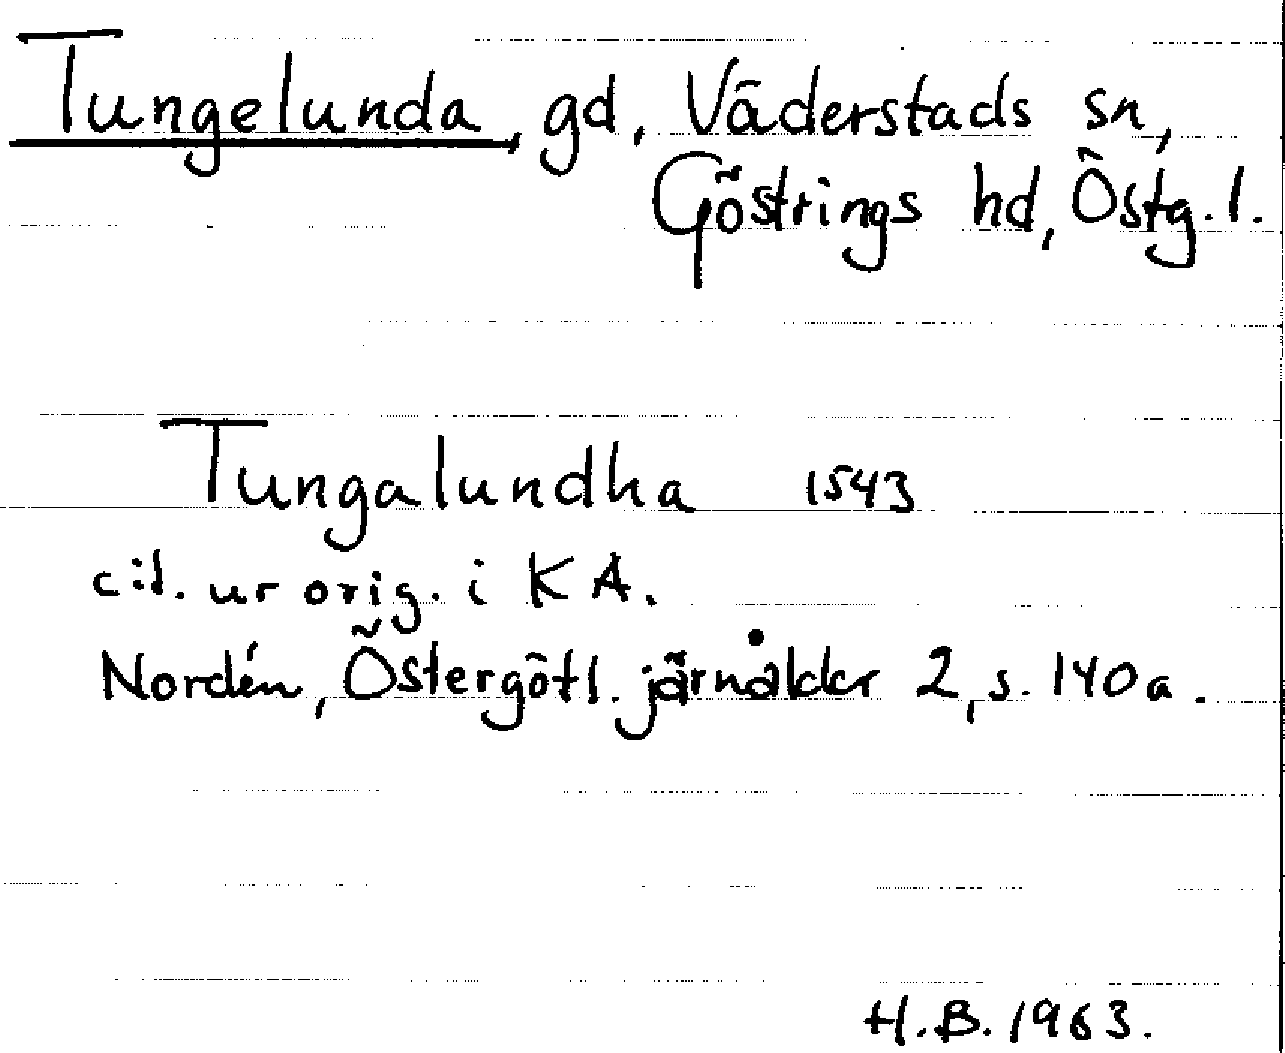 Tungelunda, gd, Väderstads sn,
Göstrings hd, Östg. l.
Tungalundha 1543
cit. ur orig. i KA.
Nordén, Östergötl. järnålder 2, s. 140a.
H.B. 1963.